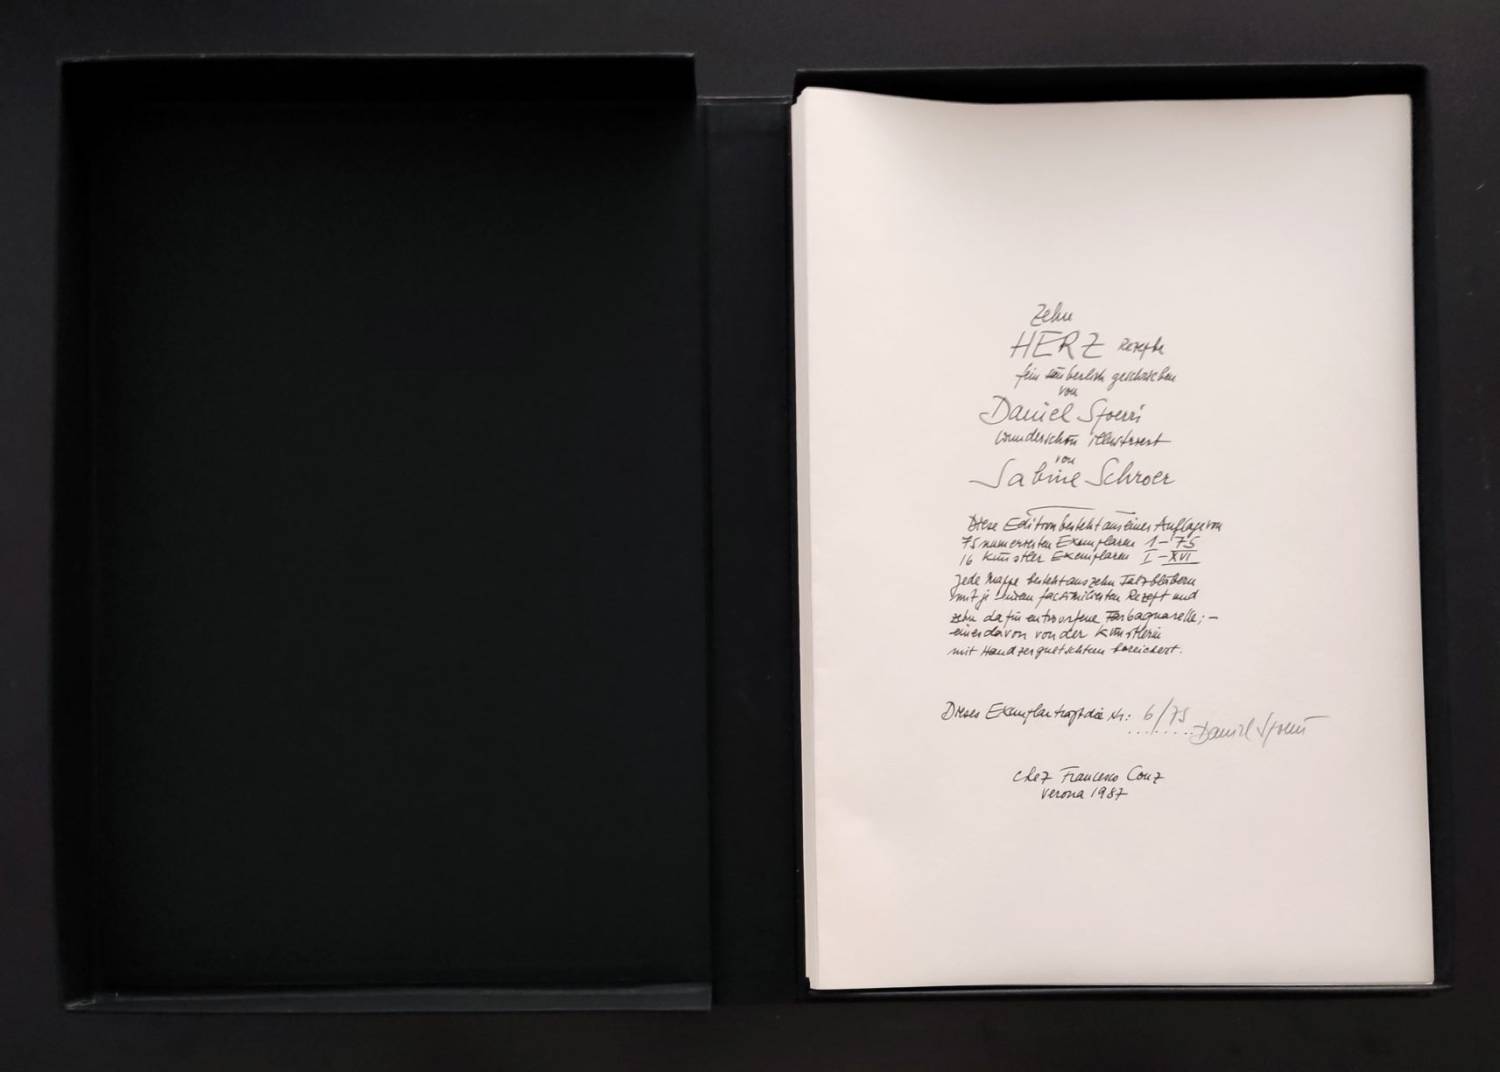 Zehn
HERZ Rezepte
fein säuberlich geschrieben
von
Daniel Spoerri
wunderschön illustriert
von
Sabine Schroer
Diese Edition besteht aus einer Auflage von
75 numerierten Exemplaren 1-75
16 Künstler Exemplaren I-XVI
jede Mappe besteht aus zehn Falzblättern
mit je einem facsimilierten Rezept und
zehn dafür entworfene Farbaquarelle; -
eines davon von der Künstlerin
mit Handzerquetschtem bereichert.
Dieses Exemplar trägt die Nr: 6/75
Daniel Spoerri
chez Francesco Conz
Verona 1987